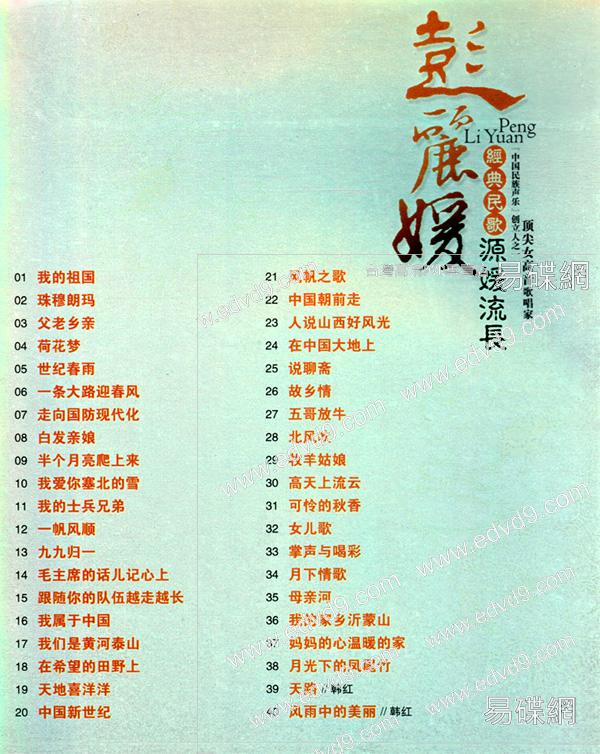 彭
麗
媛
Peng
Li Yuan
經典民歌
「中国民族声乐」创立人之一
顶尖女高音歌唱家
源媛流長
01 我的祖国
02 珠穆朗玛
03 父老乡亲
04 荷花梦
05 世纪春雨
06 一条大路迎春风
07 走向国防现代化
08 白发亲娘
09 半个月亮爬上来
10 我爱你塞北的雪
11 我的士兵兄弟
12 一帆风顺
13 九九归一
14 毛主席的话儿记心上
15 跟随你的队伍越走越长
16 我属于中国
17 我们是黄河泰山
18 在希望的田野上
19 天地喜洋洋
20 中国新世纪
21 风帆之歌
22 中国朝前走
23 人说山西好风光
24 在中国大地上
25 说聊斋
26 故乡情
27 五哥放牛
28 北风吹
29 牧羊姑娘
30 高天上流云
31 可怜的秋香
32 女儿歌
33 掌声与喝彩
34 月下情歌
35 母亲河
36 我的家乡沂蒙山
37 妈妈的心温暖的家
38 月光下的凤尾竹
39 天路 // 韩红
40 风雨中的美丽 // 韩红
易碟網
www.edvd9.com
www.edvd9.com
www.edvd9.com
www.edvd9.com
www.edvd9.com
www.edvd9.com
易碟網